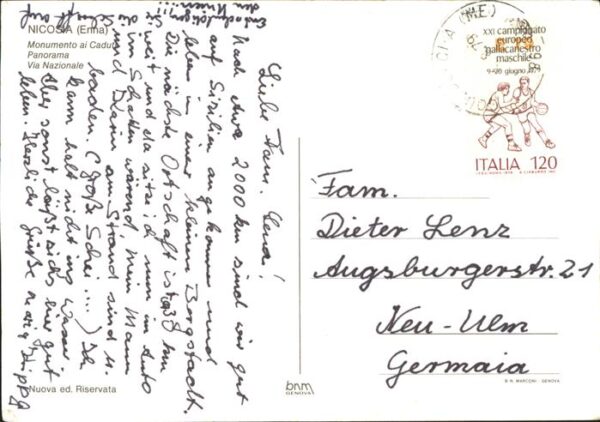 NICOSIA (Enna)
Monumento ai Caduti
Panorama
Via Nazionale
Liebe Fam. Lenz!
Nach etwa 2000 km sind wir gut
auf Sizilien angekommen und
leben in einer kleinen Bergstadt.
Die nächste Ortschaft ist 30 km
weit und da sitze ich nun im Auto
im Schatten während mein Mann
und am Strand sind u.
baden. (Große Schei....) Ich
kann halt nicht ins Wasser
Aber sonst läßt sichs hier gut
leben. Herzliche Grüße
Entschuldigen
Schrift auf
den Knien!!!
Nuova ed. Riservata
bnm
GENOVA
XXI campionato
europeo
pallacanestro
maschile
9-20 giugno 1979
ITALIA 120
Fam.
Dieter Lenz
Augsburgerstr. 21
Neu-Ulm
Germaia
D.R. MARCONI - GENOVA